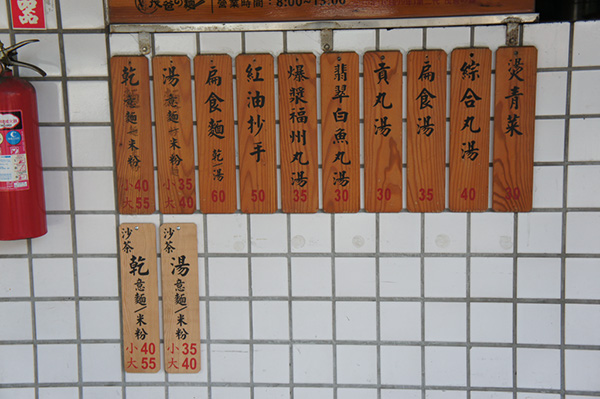 營業時間：8:00~15:00
乾意麵/米粉 小40 大55
湯意麵/米粉 小35 大40
扁食麵 乾/湯 60
紅油抄手 50
爆漿福州丸湯 35
翡翠白魚丸湯 30
貢丸湯 30
扁食湯 35
綜合丸湯 40
燙青菜 30
沙茶乾意麵/米粉 小40 大55
沙茶湯意麵/米粉 小35 大40